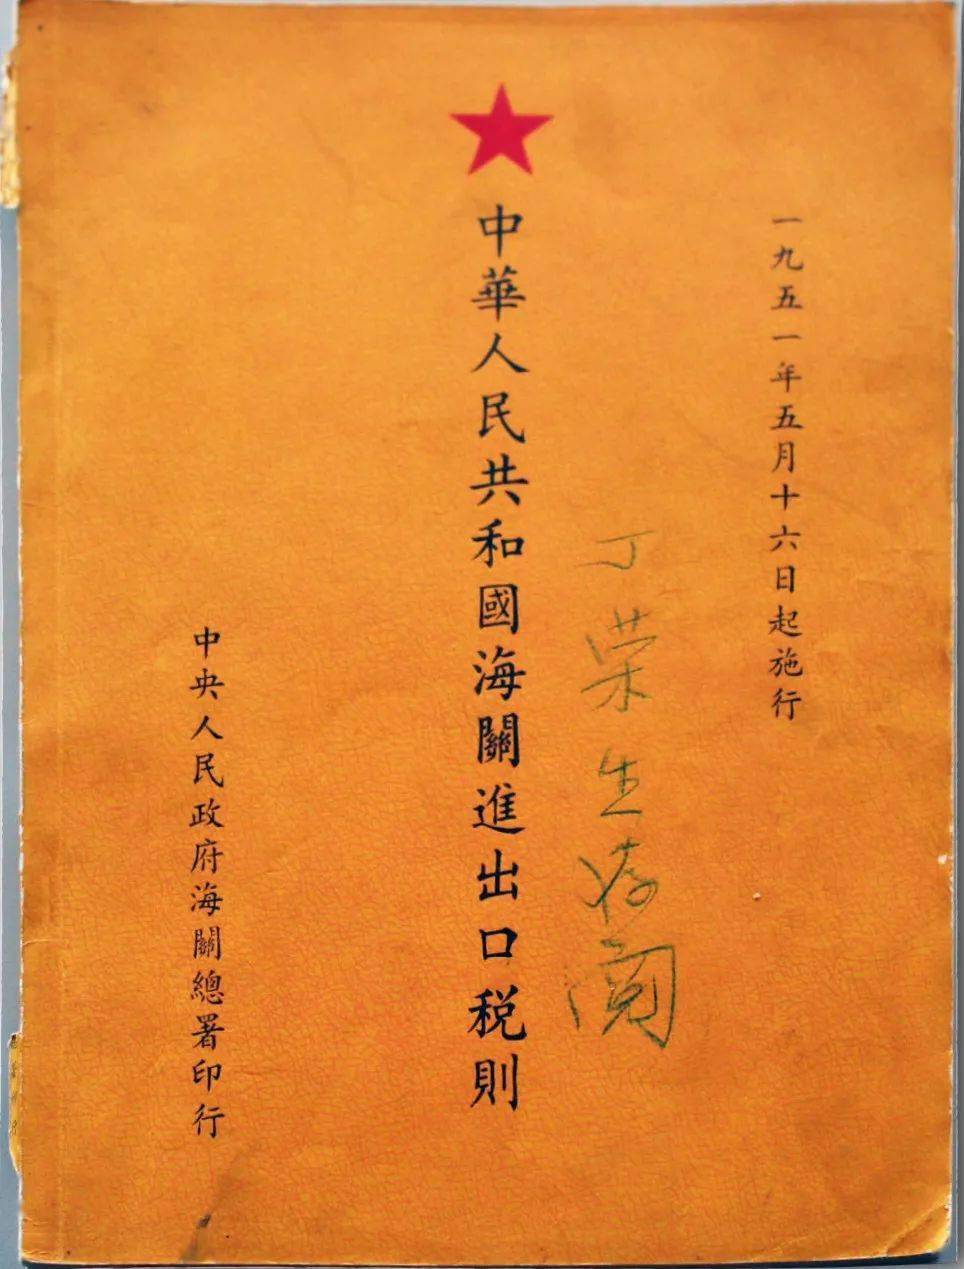 一九五一年五月十六日起施行
丁荣生存阅
中華人民共和國海關進出口税則
中央人民政府海關總署印行